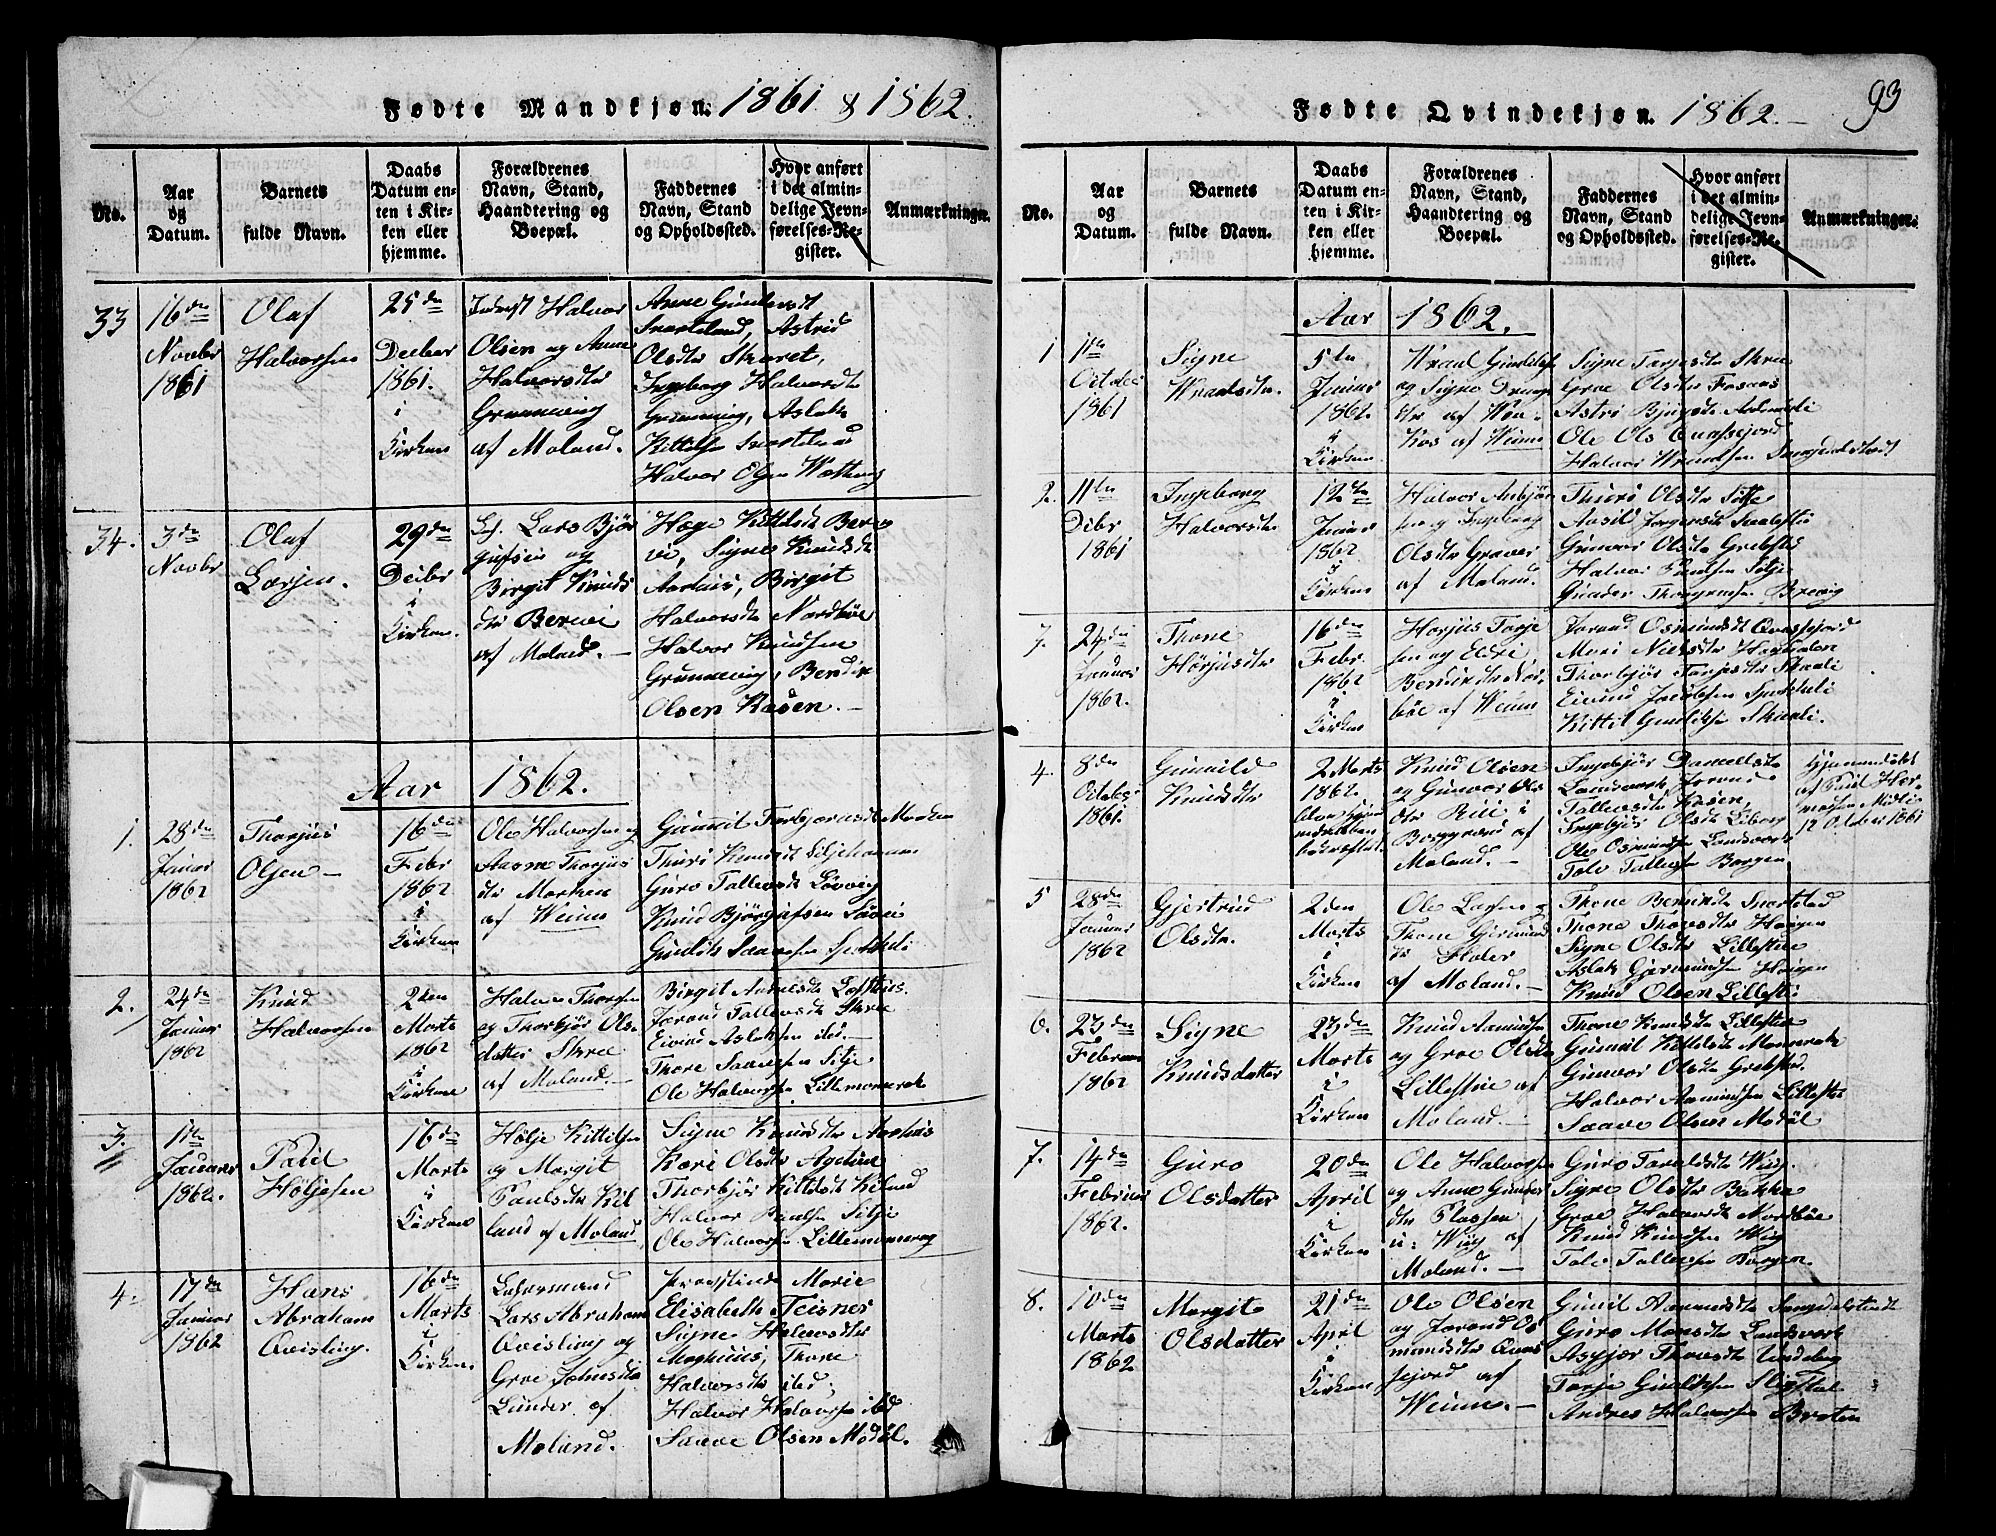 Fødte Mandkjøn. 1861 & 1862.
No.
Aar
og
Datum.
Barnets
fulde Navn.
Daabs
Datum en-
ten i Kir-
ken eller
hjemme.
Forældrenes
Navn, Stand,
Haandtering og
Boepæl.
Faddernes
Navn, Stand
og Opholdssted.
Hvor anført
i det almin-
delige Jevn-
førelses-Re-
gister.
Anmærkninger.
33
16de
Novbr
1861
Olaf
Halvorsen
25de
Decber
1861.
i
Kirken
Halvor
Olsen og Anne
Halvorsdtr
Grunnning
af Moland.
Anne
Svarteland, Astrid
Olsdtr Skaret,
Ingeborg Halvorsdtr
Grunning, Aslak
Kittilsen
Halvor Olsen
34.
3de
Novbr
Olaf
Larsen.
29de
Decbr
i
Kirken.
Lars Bjør
gufsen og
Birgit Knuds
dtr Bervei
af Moland. —
Hæge Kittilsdt Ber
vei, Signe Knudsdt
Aarhuis, Birgit
Halvorsdtr Nordbøe
Halvor Knudsen
Grunnning, Bendix
Olsen Kasen. —
Aar 1862.
1.
28de
Januar
1862
Thorjus
Olsen —
16de
Febr
1862
i
Kirken
Ole Halvorsen og
Aasne Thorjus
dtr Morken
af Weum
Gunnil Torbjørnsdt Morken
Thuri Knudsdt
Guro Tallevsdt Løvvig
Knud Bjørgufsen
2.
24de
Januar
1862
Knud
Halvorsen
2den
Marts
1862
i
Kirken
Halvor
og Thorbjør Ols-
datter Skree
af Moland. —
Birgit
Jorand Tallevsdt Skree
Eivind Aslaksen ibd. —
Thore Saavesen Sitje
Ole Halvorsen Lillemannerak
3.
11te
Januar
1862.
Paul
Høljesen
16de
Marts
i
Kirken
Hølje Kittilsen
og Margit
Paulsdtr Kil
land af Moland
Signe Knudsdtr Aarhuis
Kari Olsdtr
Thorbjør Kittilsdt Kiland
Halvor Paulsen Sitje
Ole Halvorsen Lillemannerag
4.
17de
Januar
1862
Hans
Abraham
Qvisling.
16de
Marts
i
Kirken.
Lars Abraham
Qvisling og
Groe Johnsdtr
Lunder af
Moland.
Provstinde Marie
Elisabeth Teisner
Signe Halvorsdtr
Moghuus, Thone
Halvorsdtr ibd,
Halvor Halvorsen ibd
Saave Olsen Modøl.
Fødte Qvindekjøn. 1862. —
93
No.
Aar
og
Datum.
Barnets
fulde Navn.
Daabs
Datum en-
ten i Kir-
ken eller
hjemme.
Forældrenes
Navn, Stand,
Haandtering og
Boepæl.
Faddernes
Navn, Stand
og Opholdssted.
Hvor anført
i det almin-
delige Jevn-
førelses-Re-
gister.
Anmærkninger.
Aar 1862.
1
11te
Octobr
1861
Signe
Wraalsdtr.
5te
Januar
1862.
i
Kirken
Wraal
og Signe
dtr af
af Weum
Signe Tarjesdtr Skree
Groe Olsdtr Fosaas
Astri
Ole Ols Quassejord
Halvor Wraalsen
2.
11te
Decbr
1861
Ingeborg
Halvorsdtr
12te
Januar
1862
i
Kirken
Halvor Anbjøn
sen og Ingeborg
Olsdtr Graver
af Moland.
Thuri Olsdtr Sitje
Aasil Jørgensdtr
Gunvor Olsdtr Grebsti
Halvor Paulsen Sitje
Gunder Thorgrimsen Brevig
7.
24de
Januar
1862.
Thone
Hørjusdtr
16de
Febr.
1862
i
Kirken
Horjus Tarje
sen og Eldri
Bendixdtr Nor
bøe af Weum
Jorand Osmundsdt Quassejord
Mari Nielsdtr
Thorbjør Tarjesdtr Skaali
Eivind Jacobsen
Kittil Gunliksen Skaali.
4.
8de
Octobr
1861.
Gunnild
Knudsdtr
2 Marts
1862.
Knud Olsen
og Gunvor Ols
dtr Rui i
Borggrend af
Moland. —
Ingebjør Danielsdtr
Landsverk, Jorand
Tallevsdtr Kasen,
Ingebjør Olsdt
Ole Osmundsen Landsverk
Tolv Tallevsen Borgen
Hjemmedøbt
af Paul Hor
12 October 1861
5
28de
Januar
1862
Gjertrud
Olsdtr.
2den
Marts
i
Kirken
Ole Larsen og
Thone Germund
dtr
af Moland. —
Thone
Thone Thoresdtr Haugen
Signe Olsdtr Lillestue
Aslak Germundsen Haugen
Knud Olsen Lillesti
6.
23de
Februar
1862
Signe
Knudsdatter
23de
Marts
i
Kirken
Knud Aamundsen
og Groe Olsdtr
Lillestue af
Moland. —
Thone Knudsdtr Lillestue
Gunnil Kittilsdt Mannerak
Gunvor Olsdtr Grebstad.
Halvor Aamundsen Lillestue
Saave Olsen Modøl
7.
14de
Februar
1862.
Guro
Olsdatter
20de
April
i
Kirken
Ole Halvorsen
og Anne Gunder
dtr Plassen
u. Wiig af
Moland. —
Guro Taraldsdtr Wiig.
Signe Olsdtr Bakka
Groe Halvorsdt Nordbøe
Knud Knudsen Wiig
Tolv Tallevsen Borgen.
8.
10de
Marts
1862
Margit
Olsdatter
21de
April
i
Kirken
Ole Olsen
og Jorand Os
mundsdtr Quas
sejord af
Weum. —
Gunil Aamundsdtr
Guro Monsdtr Landsverk
Asbjør Thoresdtr Lindeberg
Tarje Gunliksen
Andres Halvorsen Broten